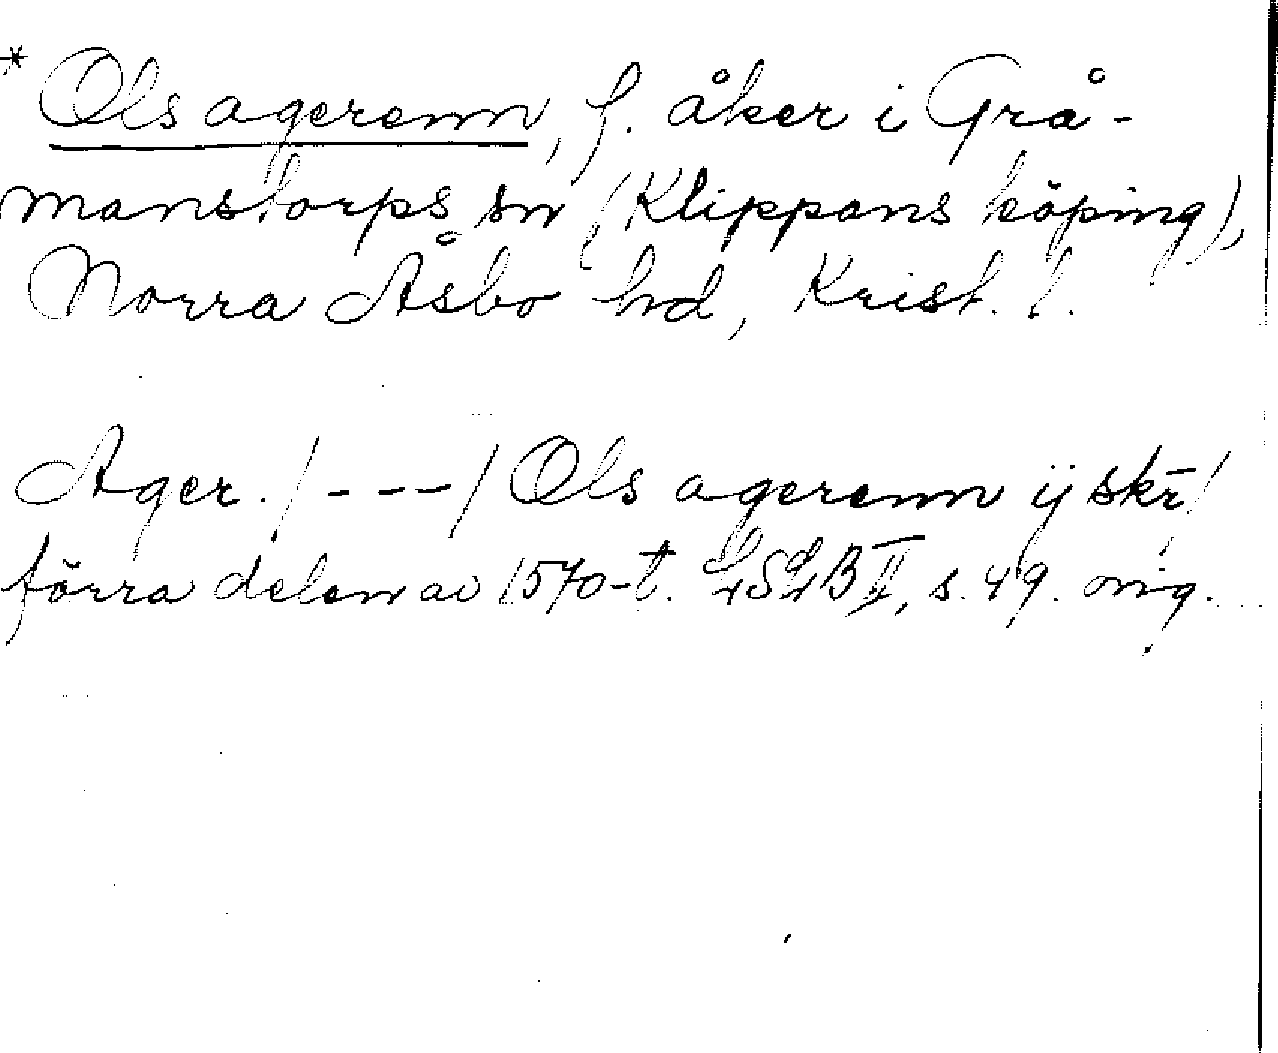 * Ols agerenn, f. åker i Grå-
manstorps sn (Klippans köping),
Norra Åsbo hd, Krist. l.
Ager. /---/ Ols agerenn ij skr̄/
förra delen av 1570-t. LSLB II, s. 49. orig.